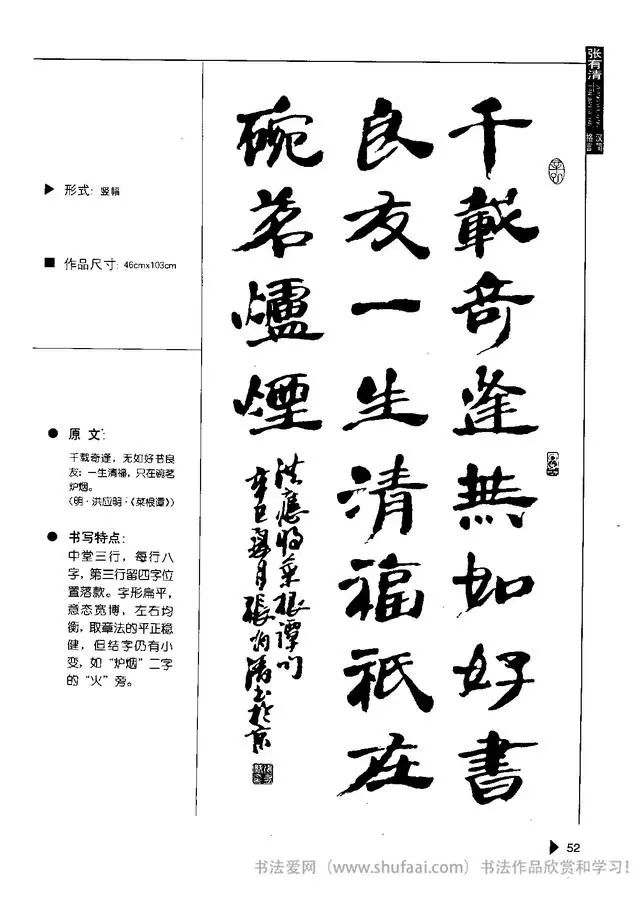 张有清
汉简
格言
千載奇逢無如好書
良友一生清福祇在
碗茗爐煙
洪應明菜根譚句
辛巳夏月張有清书於京
▶ 形式: 竖幅
■ 作品尺寸: 46cmx103cm
● 原文:
千载奇逢，无如好书良
友；一生清福，只在碗茗
炉烟。
(明·洪应明:《菜根谭》)
● 书写特点:
中堂三行，每行八
字，第三行留四字位
置落款。字形扁平，
意态宽博，左右均
衡，取章法的平正稳
健，但结字仍有小
变，如“炉烟”二字
的“火”旁。
▶ 52
书法爱网（www.shufaai.com）书法作品欣赏和学习！